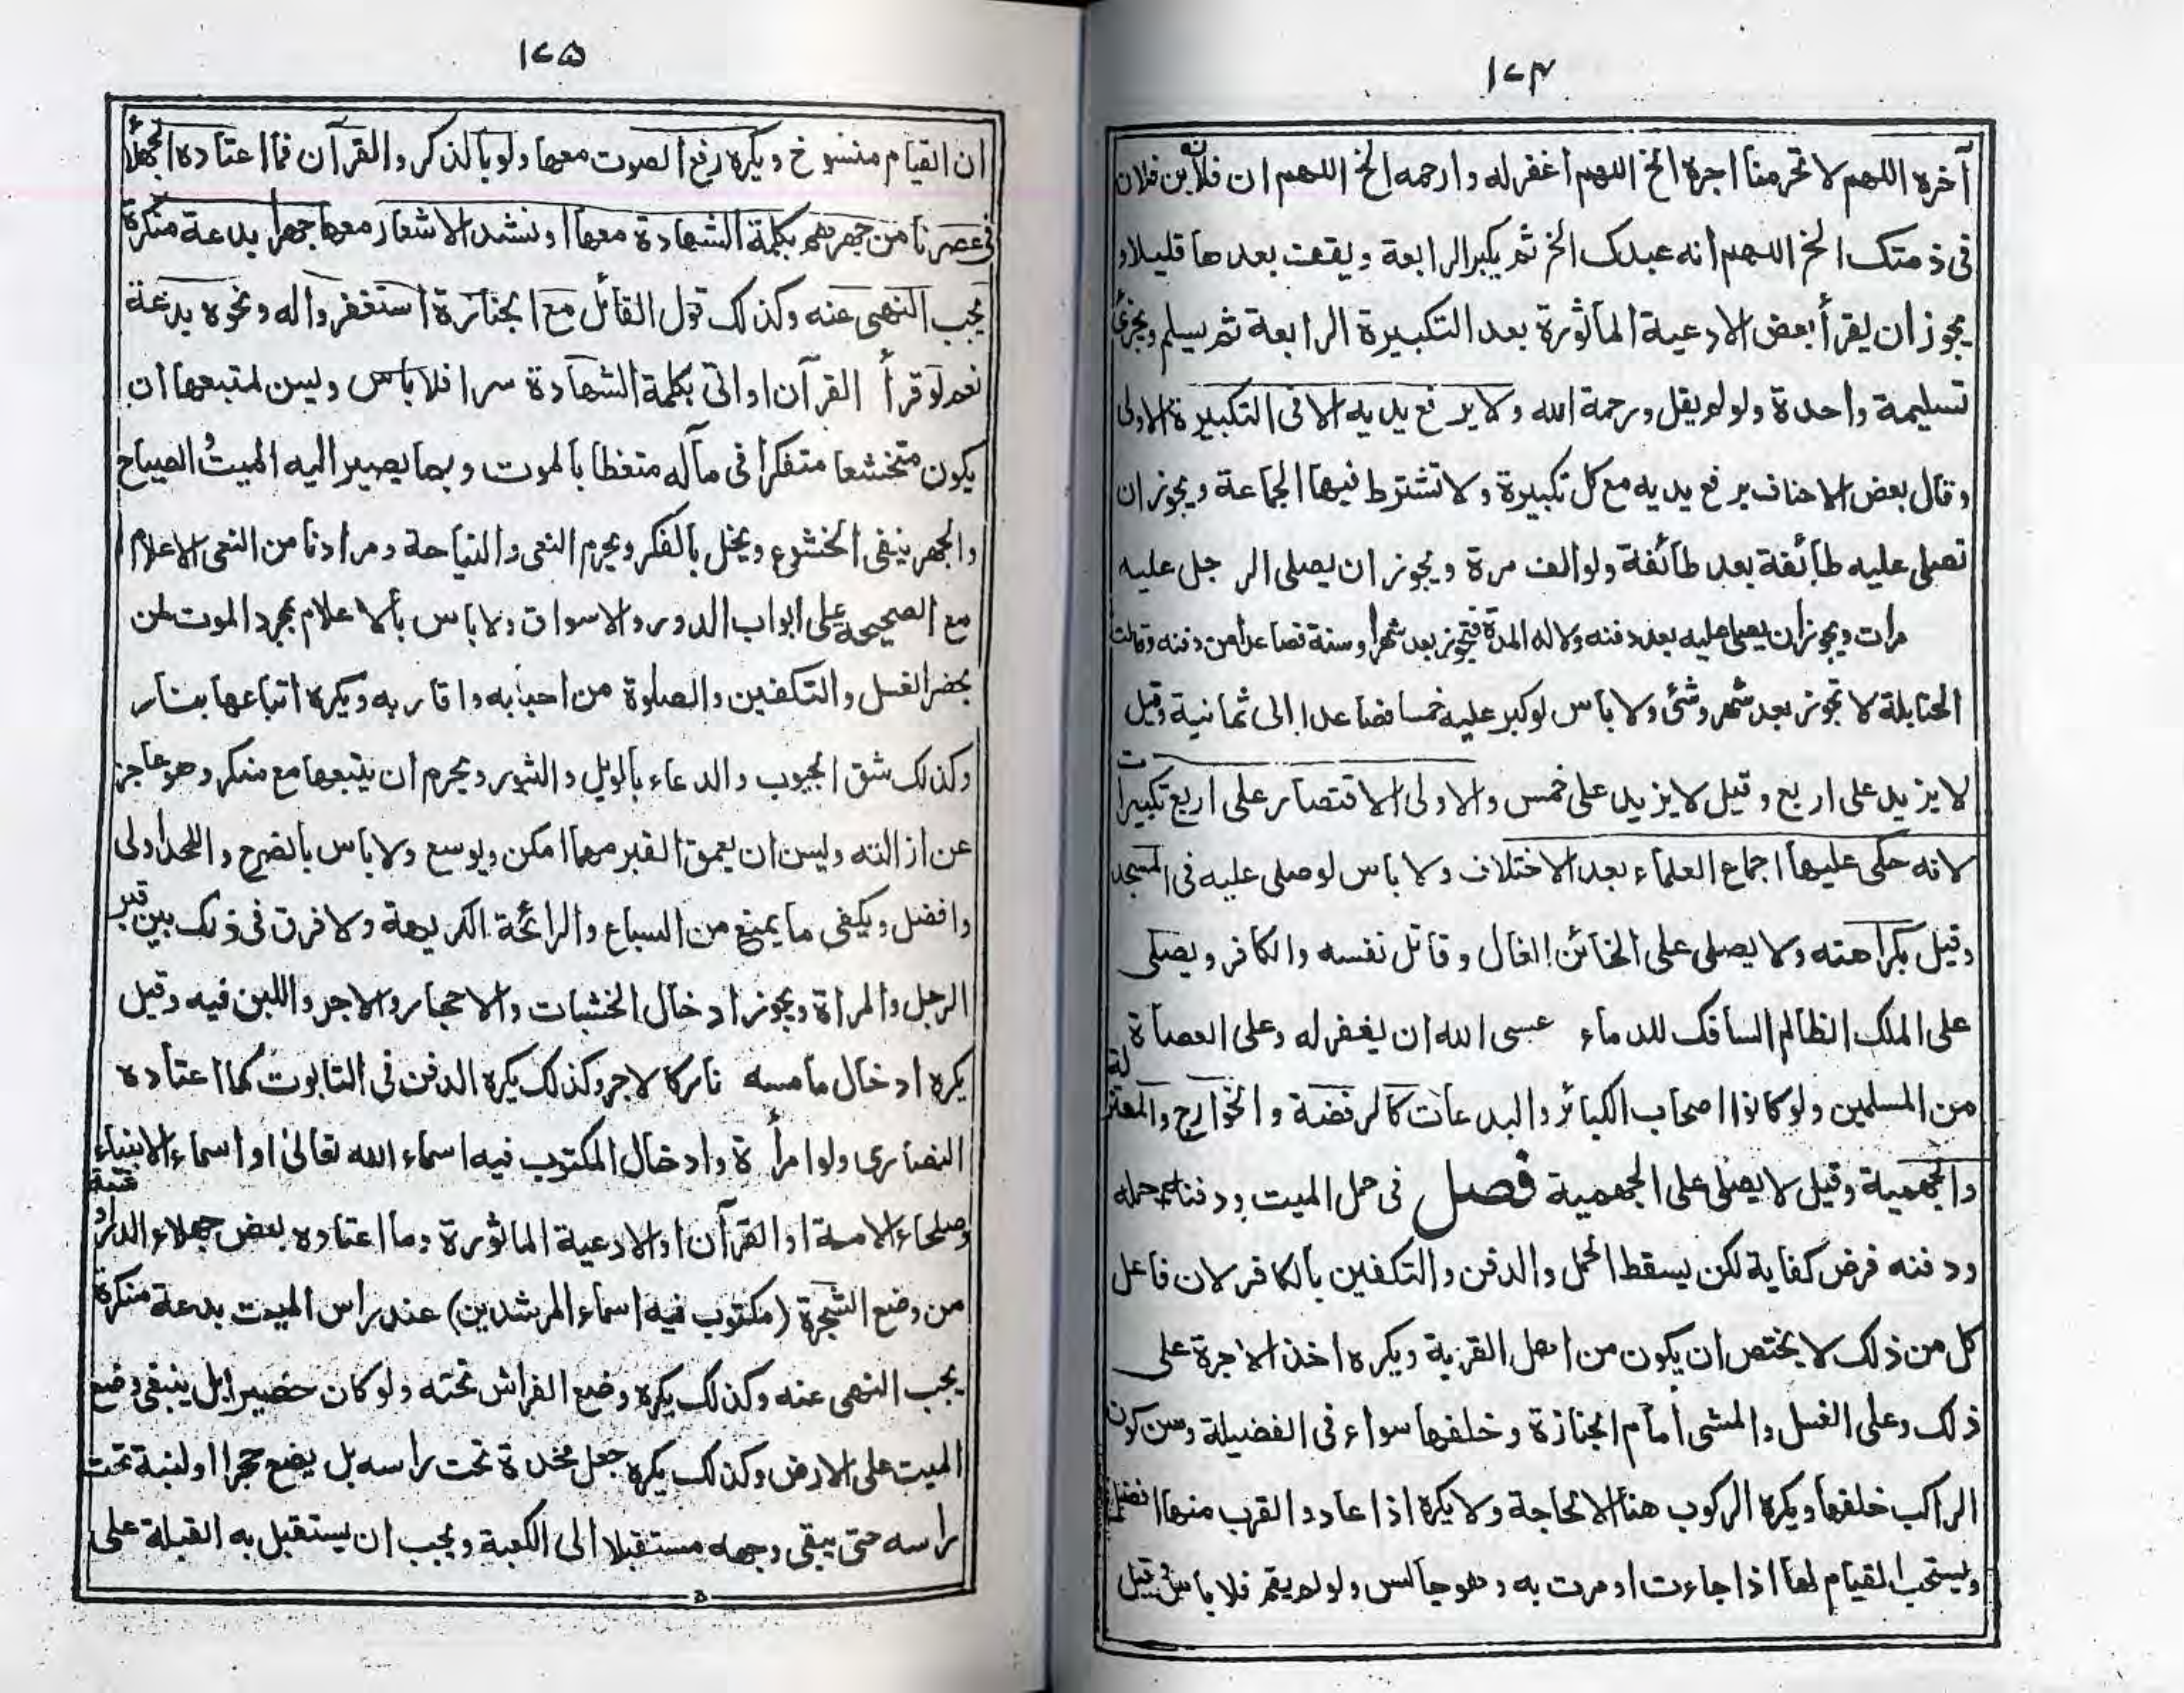 ١٧٤
آخره اللهم لا تحرمنا اجره الخ اللهم اغفر له وارحمه الخ اللهم ان فلان بن فلان
فى ذمتك الخ اللهم انه عبدك الخ ثم يكبر الرابعة ويقف بعدها قليلا و
يجوز ان يقرأ بعض الادعية المأثورة بعد التكبيرة الرابعة ثم يسلم ويجزئ
تسليمة واحدة ولو لم يقل ورحمة الله ولا يرفع يديه الا فى التكبيرة الاولى
وقال بعض الاحناف يرفع يديه مع كل تكبيرة ولا تشترط فيها الجماعة ويجوز ان
تصلى عليه طائفة بعد طائفة ولو الف مرة ويجوز ان يصلى الرجل عليه
مرات ويجوز ان يصلى عليه بعد دفنه ولا له المدة فتجوز بعد شهر او سنة فصاعدا من دفنه وقالت
الحنابلة لا تجوز بعد شهر وشئ ولا باس لو كبر عليه خمسا فصاعدا الى ثمانية وقيل
لا يزيد على اربع وقيل لا يزيد على خمس والاولى الاقتصار على اربع تكبيرات
لانه حكى عليها اجماع العلماء بعد الاختلاف ولا باس لو صلى عليه فى المسجد
وقيل بكراهته ولا يصلى على الخائن الغال وقاتل نفسه والكافر ويصلى
على الملك الظالم السافك للدماء عسى الله ان يغفر له وعلى العصاة
من المسلمين ولو كانوا اصحاب الكبائر والبدعات كالرفضة والخوارج والمعتزلة
والجهمية وقيل لا يصلى على الجهمية فصل فى حمل الميت ودفنه حمله
ودفنه فرض كفاية لكن يسقط الحمل والدفن والتكفين بالكافر لان فاعل
كل من ذلك لا يختص ان يكون من اهل القربة ويكره اخذ الاجرة على
ذلك وعلى الغسل والمشى امام الجنازة وخلفها سواء فى الفضيلة وسن كون
الراكب خلفها ويكره الركوب هنا الا لحاجة ولا يكره اذا عاد والقرب منها افضل
ويستحب القيام لها اذا جاءت او مرت به وهو جالس ولو لم يقم فلا باس وقيل
١٧٥
ان القيام منسوخ ويكره رفع الصوت معها ولو بالذكر والقرآن فما اعتاده الجهلا
فى عصرنا من جهرهم بكلمة الشهادة معها او نشد الاشعار معها جهرا بدعة منكرة
يجب النهى عنه وكذلك قول القائل مع الجنازة استغفروا له ونحوه بدعة
نعم لو قرأ القرآن او اتى بكلمة الشهادة سرا فلا باس وليسن لمتبعها ان
يكون متخشعا متفكرا فى مآله متعظا بالموت وبما يصير اليه الميت الصياح
والجهر ينفى الخشوع ويخل بالفكر ويحرم النعى والنياحة ومرادنا من النعى الاعلام
مع الصيحة على ابواب الدور والاسواق ولا باس بالاعلام بمجرد الموت لمن
يحضر الغسل والتكفين والصلوة من احبابه واقاربه ويكره اتباعها بنار
وكذلك شق الجيوب والدعاء بالويل والثبور ويحرم ان يتبعها مع منكر وهو عاجز
عن ازالته وليسن ان يعمق القبر مهما امكن ويوسع ولا باس بالضرح واللحد اولى
وافضل ويكفى ما يمنع من السباع والرائحة الكريهة ولا فرق فى ذلك بين قبر
الرجل والمراة ويجوز ادخال الخشبات والاحجار والاجر واللبن فيه وقيل
يكره ادخال ما مسه نار كالاجر وكذلك يكره الدفن فى التابوت كما اعتاده
النصارى ولو امرأة وادخال المكتوب فيه اسماء الله تعالى او اسماء الانبياء
وصلحاء الامة او القرآن او الادعية الماثورة وما اعتاده بعض جهلاء
من وضع الشجرة (مكتوب فيه اسماء المرشدين) عند راس الميت بدعة منكرة
يجب النهى عنه وكذلك يكره وضع الفراش تحته ولو كان حصيرا بل ينبغى وضع
الميت على الارض وكذلك يكره جعل مخدة تحت راسه بل يضع حجرا او لبنة تحت
راسه حتى يبقى وجهه مستقبلا الى الكعبة ويجب ان يستقبل به القبلة على